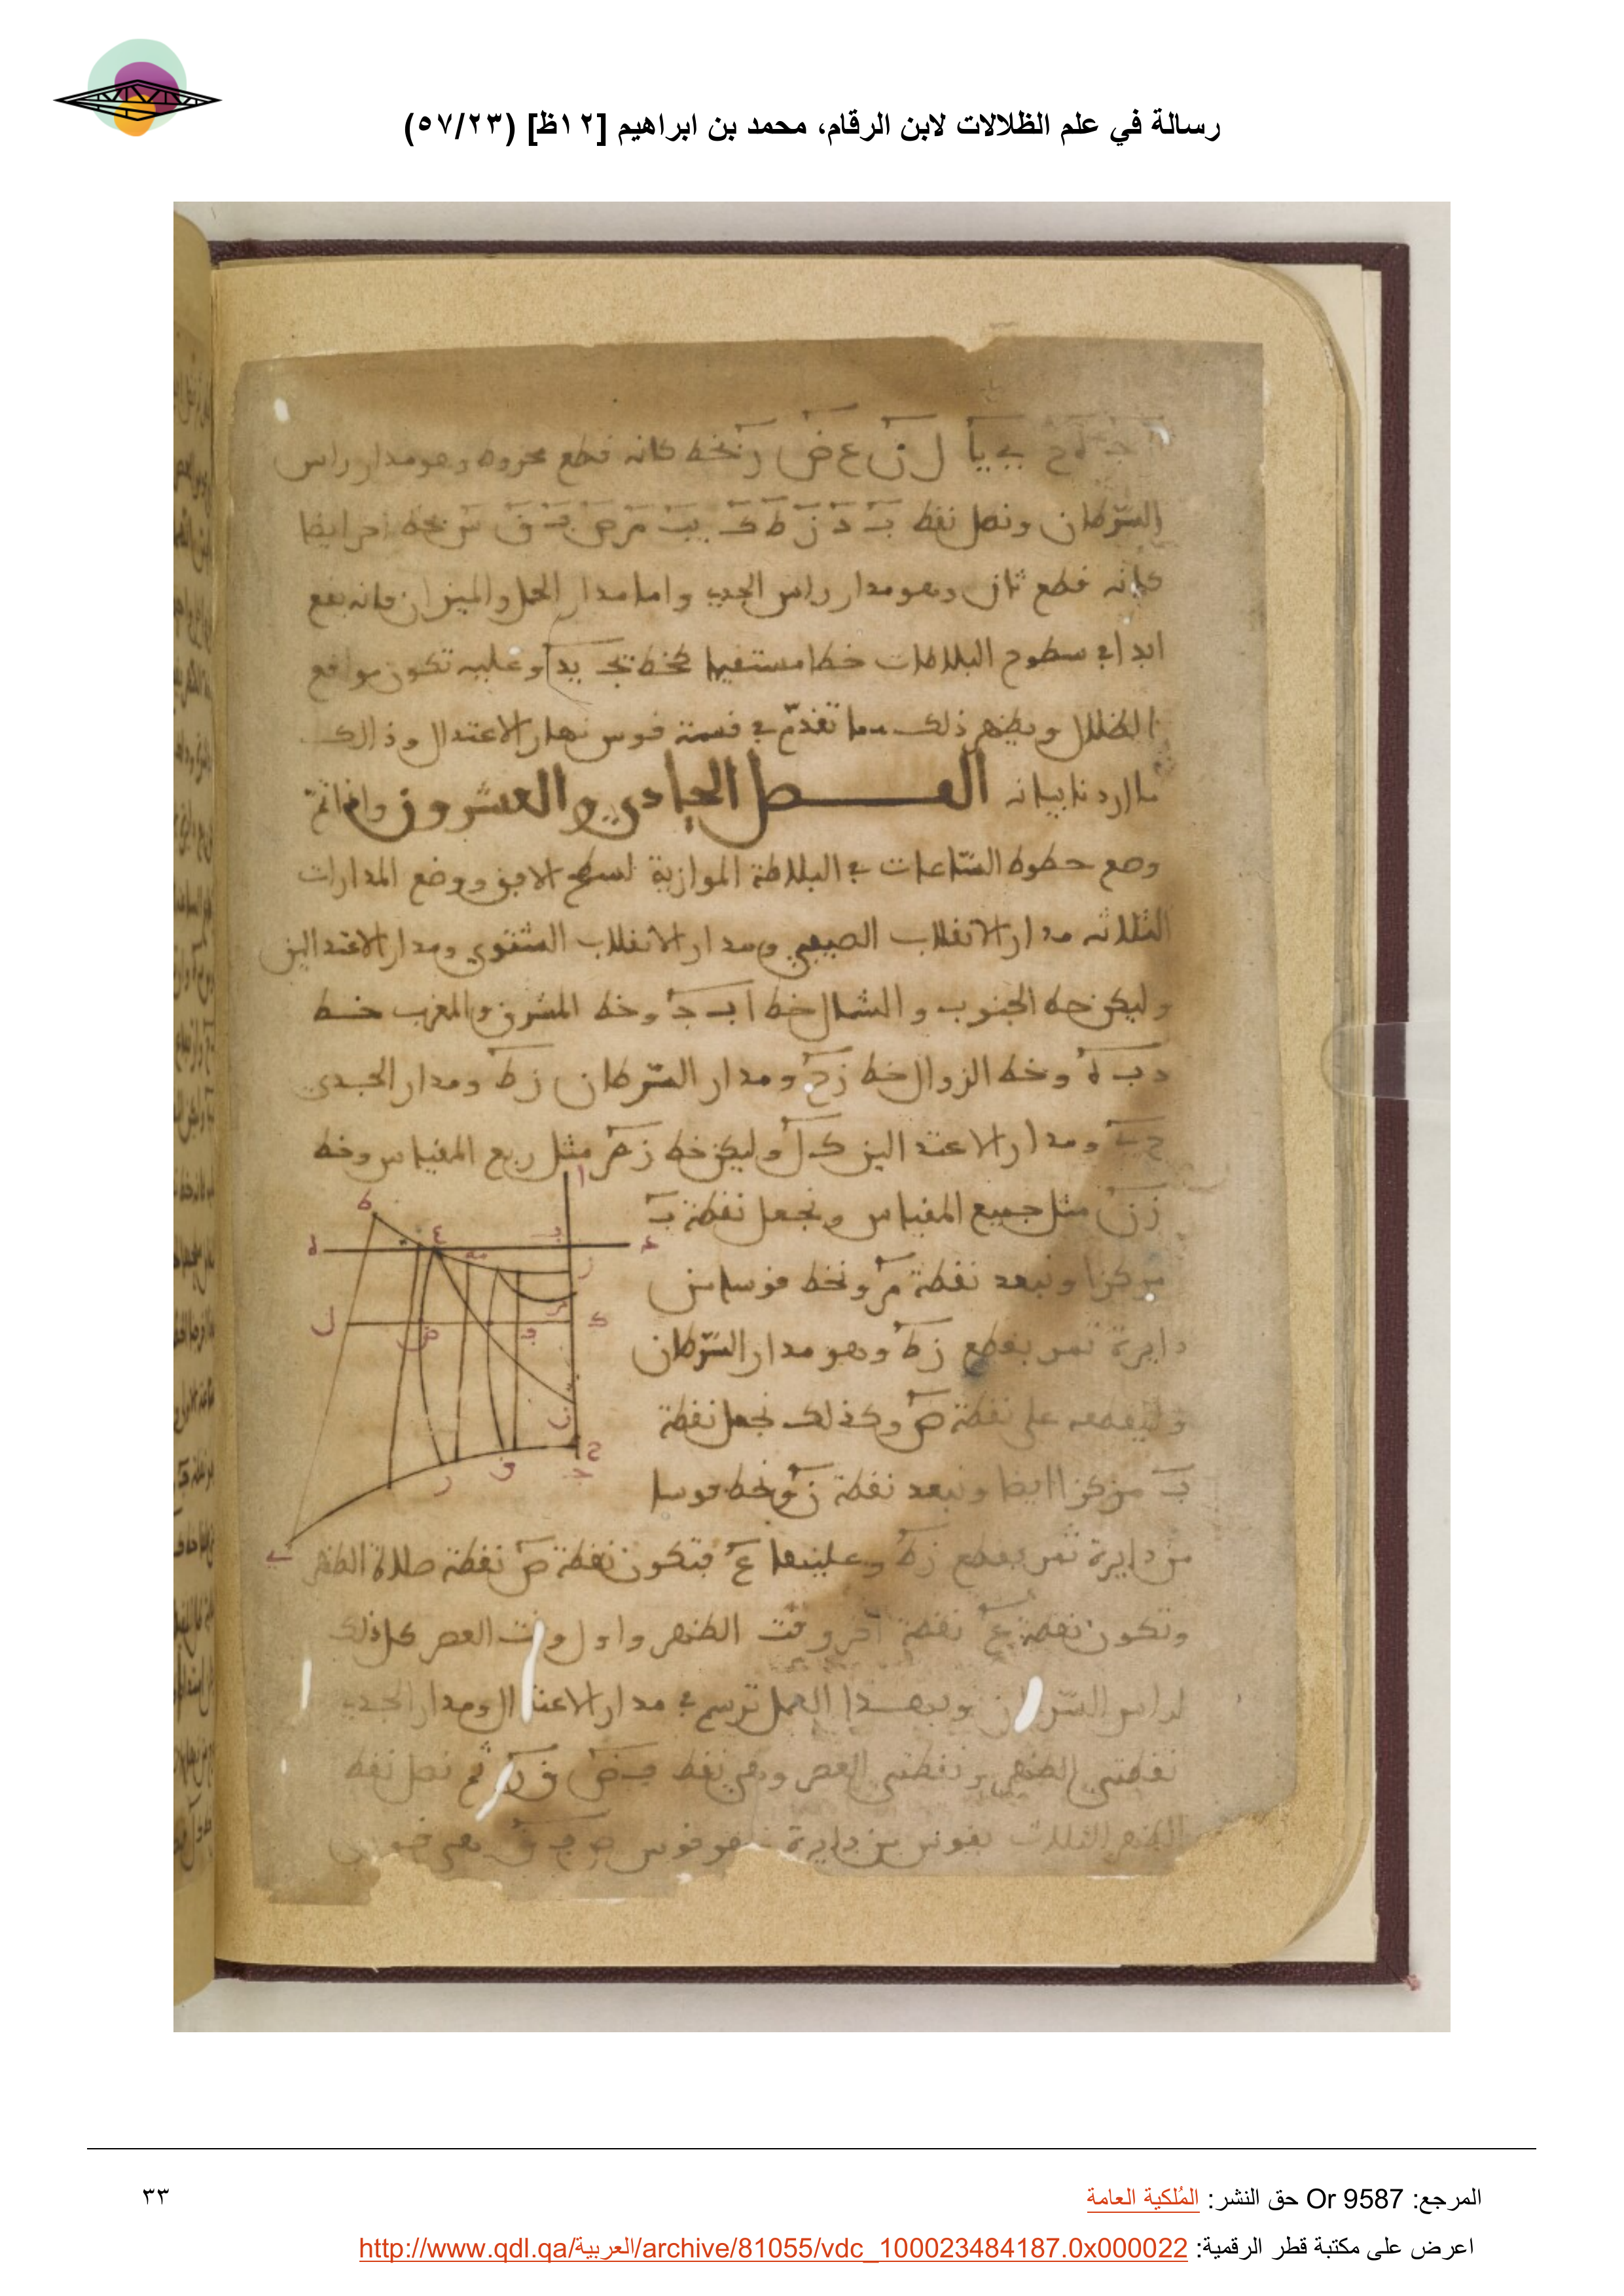 رسالة في علم الظلالات لابن الرقام، محمد بن ابراهيم [١٢ظ] (٥٧/٢٣)
ل ن ع ض ر نخطه كانه قطع مخروط وهو مدار راس
السرطان ونصل نقط ب د ز ط ك يب م ص ف ق بخط اخر ايضا
كانه قطع ثان وهو مدار راس الجدي واما مدار الحمل والميزان فانه يقع
ابدا في سطوح البلاطات خطا مستقيما كخط يج يد وعليه تكون مواقع
الظلال ويظهر ذلك مما تقدم في قسمة قوس نهار الاعتدال وذالك
ما اردنا بيانه الفصل الحادي والعشرون في
وضع خطوط الساعات في البلاطة الموازية لسطح الافق ووضع المدارات
الثلاثه مدار الانقلاب الصيفي ومدار الانقلاب الشتوي ومدار الاعتدالين
وليكن خط الجنوب والشمال خط ا ب ج وخط المشرق والمغرب خط
د ب ه وخط الزوال خط ز ح ومدار السرطان ز ط ومدار الجدي
ح ي ومدار الاعتدالين ك ل وليكن خط ز م مثل ربع المقياس وخط
ز ن مثل جميع المقياس ونجعل نقطة ب
مركزا وببعد نقطة م ونخط قوسا من
دايرة تمر بقطع ز ط وهو مدار السرطان
وليقطعه على نقطة ص وكذلك نجعل نقطة
ب مركزا ايضا وببعد نقطة ن ونخط قوسا
من دايرة تمر بقطع ز ط وعليها ع فتكون نقطة ص نقطة صلاة الظهر
وتكون نقطة ع نقطة اخر وقت الظهر واول وقت العصر كل ذلك
لراس السرطان وبهذا العمل ترسم في مدار الاعتدال ومدار الجدي
نقطتي الظهر ونقطتي العصر وهي نقط ف ض ق ر ثم نصل نقط
الظهر الثلاث بقوس من دايرة وهو قوس ص ف ق
المرجع: Or 9587 حق النشر: المُلكية العامة
٣٣
اعرض على مكتبة قطر الرقمية: http://www.qdl.qa/العربية/archive/81055/vdc_100023484187.0x000022